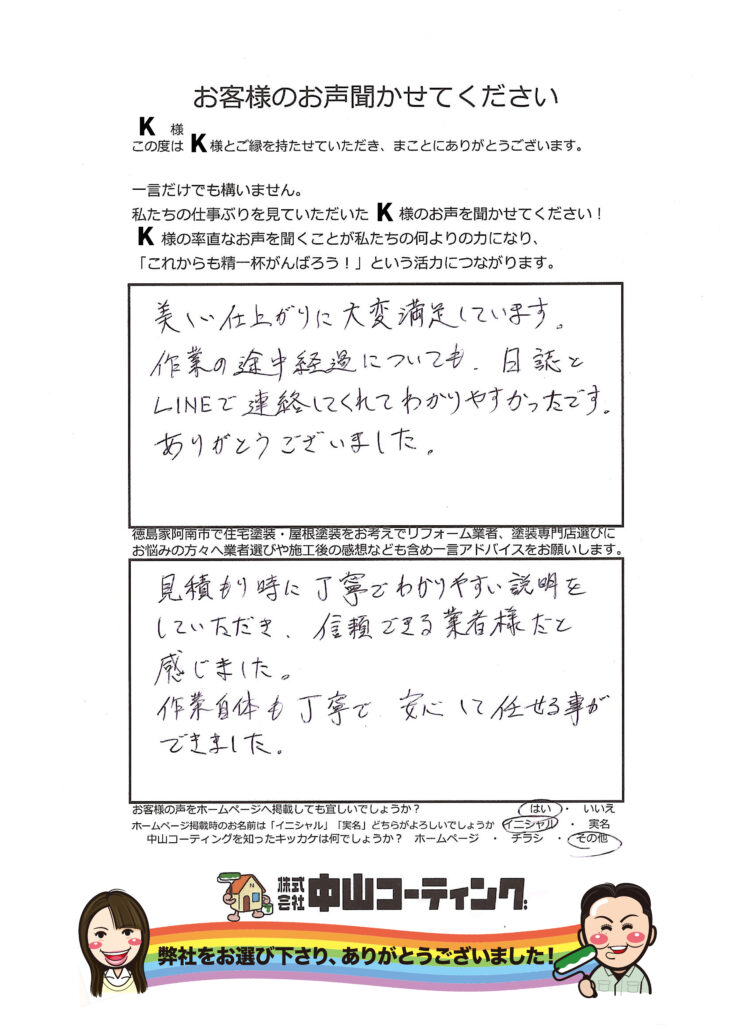 お客様のお声聞かせてください
K 様
この度は K 様とご縁を持たせていただき、まことにありがとうございます。
一言だけでも構いません。
私たちの仕事ぶりを見ていただいた K 様のお声を聞かせてください！
K 様の率直なお声を聞くことが私たちの何よりの力になり、
「これからも精一杯がんばろう！」という活力につながります。
美しい仕上がりに大変満足しています。
作業の途中経過についても、日誌と
LINEで連絡してくれてわかりやすかったです。
ありがとうございました。
徳島家阿南市で住宅塗装・屋根塗装をお考えでリフォーム業者、塗装専門店選びに
お悩みの方々へ業者選びや施工後の感想なども含め一言アドバイスをお願いします。
見積もり時に丁寧でわかりやすい説明を
していただき、信頼できる業者様だと
感じました。
作業自体も丁寧で、安心して任せる事が
できました。
お客様の声をホームページへ掲載しても宜しいでしょうか？ はい ・ いいえ
ホームページ掲載時のお名前は「イニシャル」「実名」どちらがよろしいでしょうか イニシャル ・ 実名
中山コーティングを知ったキッカケは何でしょうか？ ホームページ ・ チラシ ・ その他
N 株式会社 中山コーティング
弊社をお選び下さり、ありがとうございました！